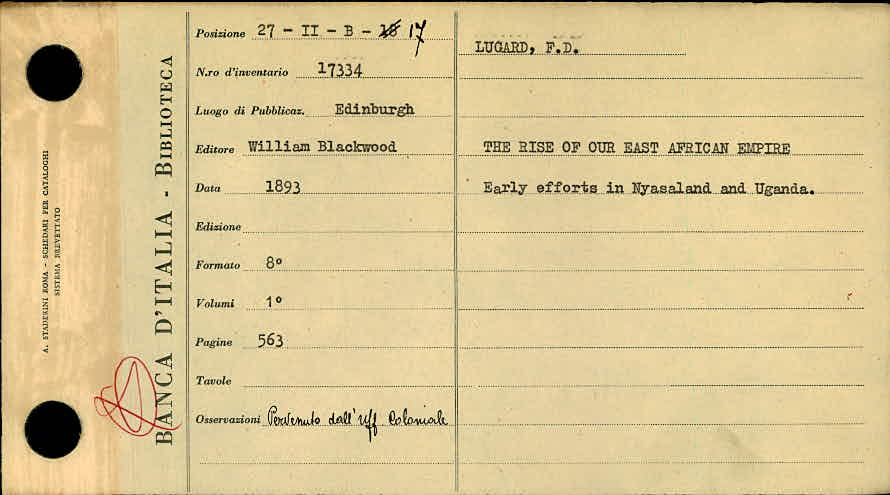 A. STADERINI ROMA - SCHEDARI PER CATALOGHI
SISTEMA BREVETTATO
BANCA D'ITALIA - BIBLIOTECA
Posizione 27 - II - B - 18 17
N.ro d'inventario 17334
Luogo di Pubblicaz. Edinburgh
Editore William Blackwood
Data 1893
Edizione
Formato 8°
Volumi 1°
Pagine 563
Tavole
Osservazioni Pervenuto dall'Uff Coloniale
LUGARD, F.D.
THE RISE OF OUR EAST AFRICAN EMPIRE
Early efforts in Nyasaland and Uganda.